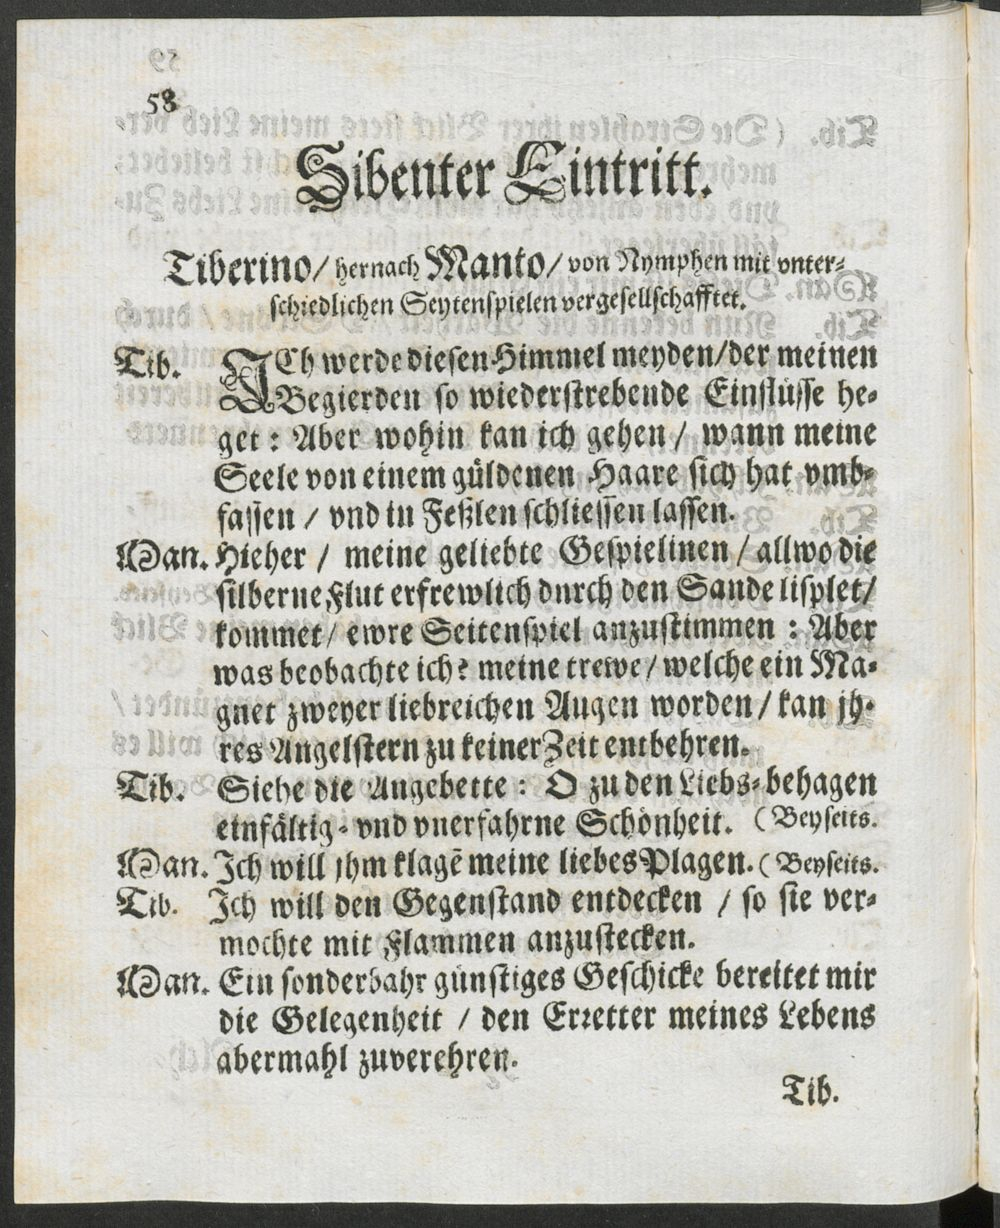 58
Sibenter Eintritt.
Tiberino/ hernach Manto/ von Nymphen mit vnter-
schiedlichen Seytenspielen vergesellschafftet.
Tib. ICh werde diesen Himmel meyden/der meinen
Begierden so wiederstrebende Einflüsse he-
get : Aber wohin kan ich gehen / wann meine
Seele von einem güldenen Haare sich hat vmb-
fassen / vnd in Feßlen schliessen lassen.
Man. Hieher / meine geliebte Gespielinen / allwo die
silberne Flut erfrewlich durch den Sande lisplet/
kommet/ ewre Seitenspiel anzustimmen : Aber
was beobachte ich? meine trewe/ welche ein Ma-
gnet zweyer liebreichen Augen worden / kan jh-
res Angelstern zu keiner Zeit entbehren.
Tib. Siehe die Angebette : O zu den Liebs-behagen
einfältig- vnd vnerfahrne Schönheit. (Beyseits.
Man. Ich will jhm klagē meine liebes Plagen. (Beyseits.
Tib. Ich will den Gegenstand entdecken / so sie ver-
mochte mit Flammen anzustecken.
Man. Ein sonderbahr günstiges Geschicke bereitet mir
die Gelegenheit / den Erretter meines Lebens
abermahl zuverehren.
Tib.